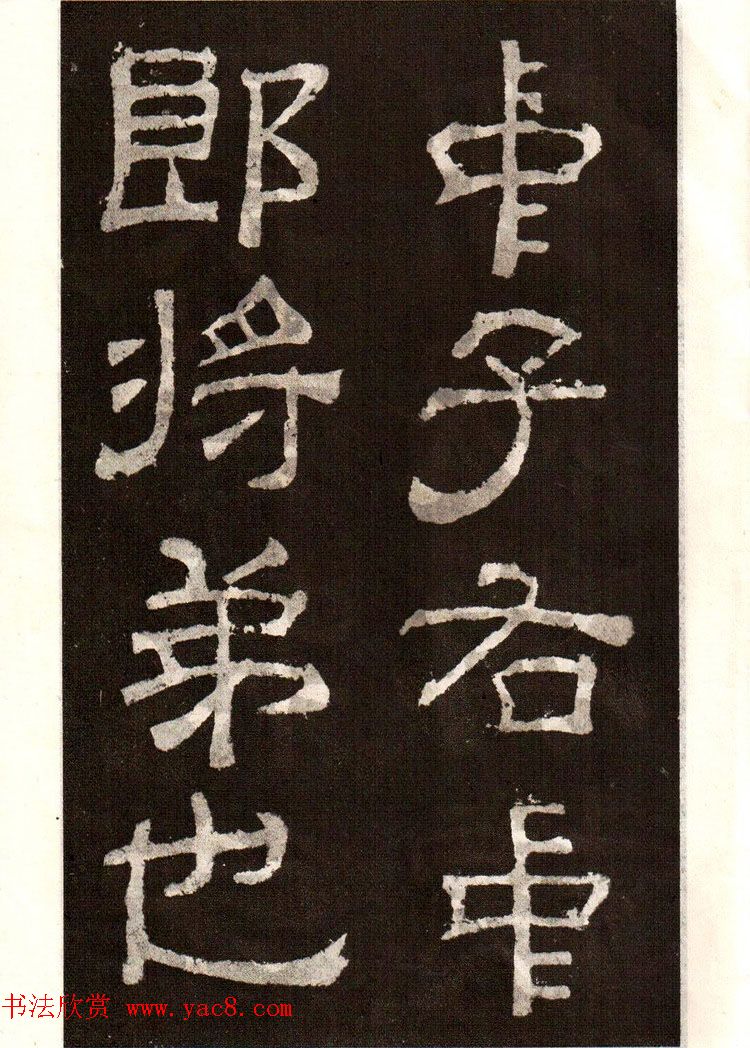 中子右中
郎将弟也
书法欣赏 www.yac8.com